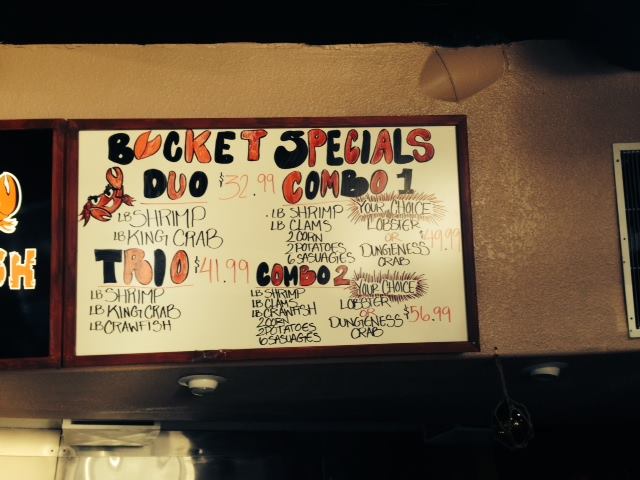 BUCKET SPECIALS
DUO $32.99
LB SHRIMP
LB KING CRAB
TRIO $41.99
LB SHRIMP
LB KING CRAB
LB CRAWFISH
COMBO 1
LB SHRIMP
LB CLAMS
2 CORN
2 POTATOES
6 SASUAGIES
YOUR CHOICE
LOBSTER
OR
DUNGENESS
CRAB
$49.99
COMBO 2
LB SHRIMP
LB CLAMS
LB CRAWFISH
2 CORN
2 POTATOES
6 SASUAGIES
YOUR CHOICE
LOBSTER
OR
DUNGENESS
CRAB
$56.99
SH